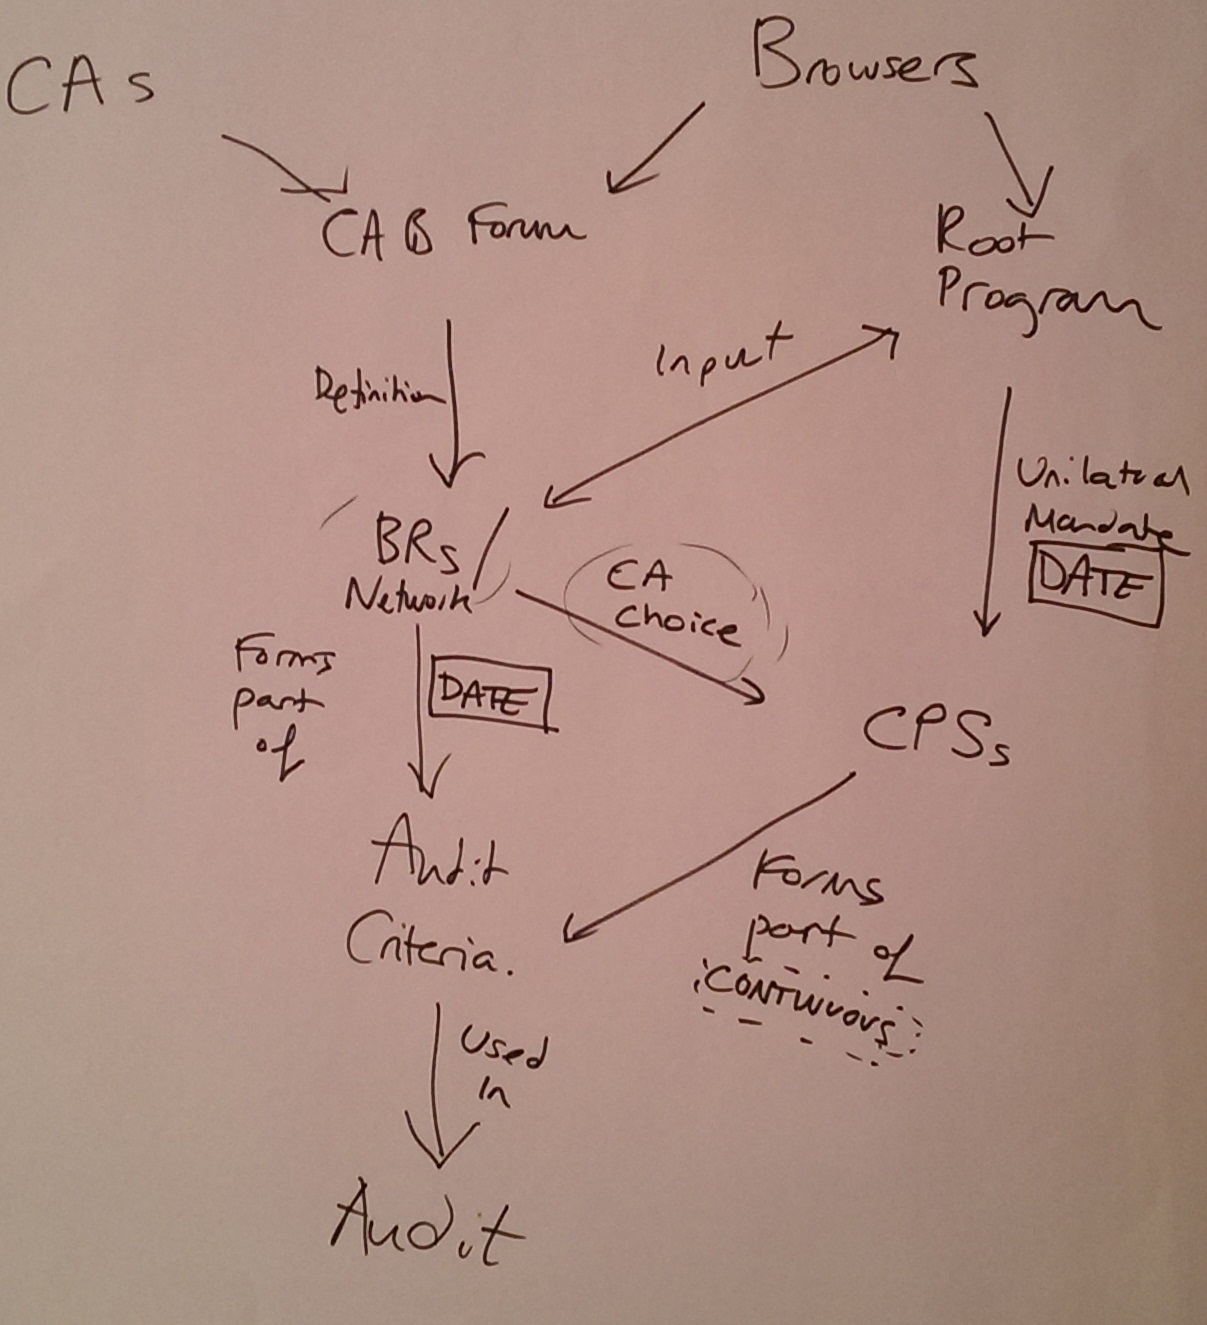 CAs
Browsers
CAB Forum
Root
Program
Input
Definition
Unilateral
Mandate
DATE
BRs /
Network
CA
Choice
Forms
part
of
DATE
CPSs
Audit
Criteria.
Forms
part of
CONTINUOUS
Used
In
Audit